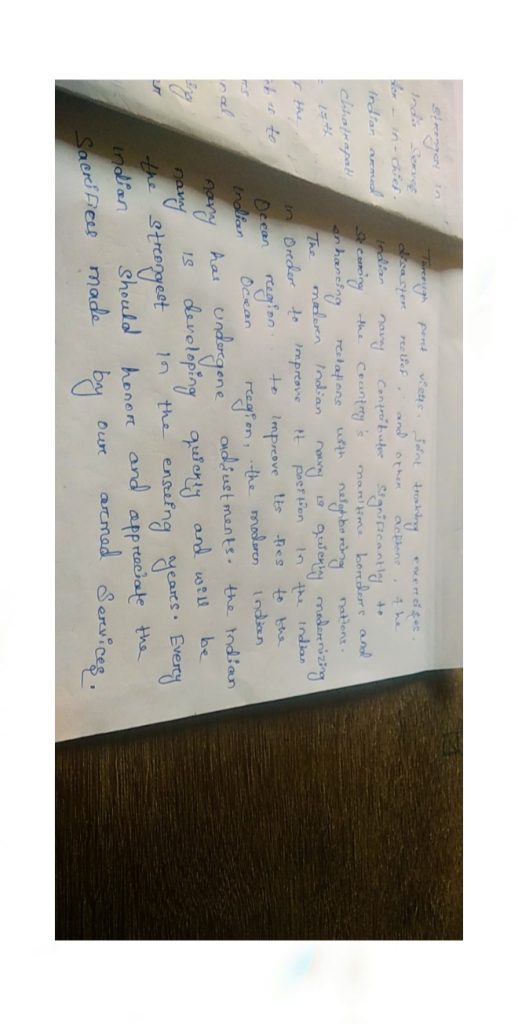 strongest in
India. Savarge
der-in-chief.
Indian armed
Chhatrapati
17th
r the
b is to
rs
nal
ing
Through port visits. Joint training exercises.
disaster relief, and other actions, the
Indian navy contribute significantly to
Securing the country's maritime borders and
enhancing relations with neighboring nations.
The modern Indian navy is quickly modernizing
in Oreder to improve it position in the Indian
Ocean region. to improve its ties to the
Indian Ocean region, the modern Indian
navy has undergone adjustments. the Indian
navy is developing quickly and will be
the strongest in the ensuing years. Every
Indian should honor and appreciate the
Sacrifices made by our armed Services.